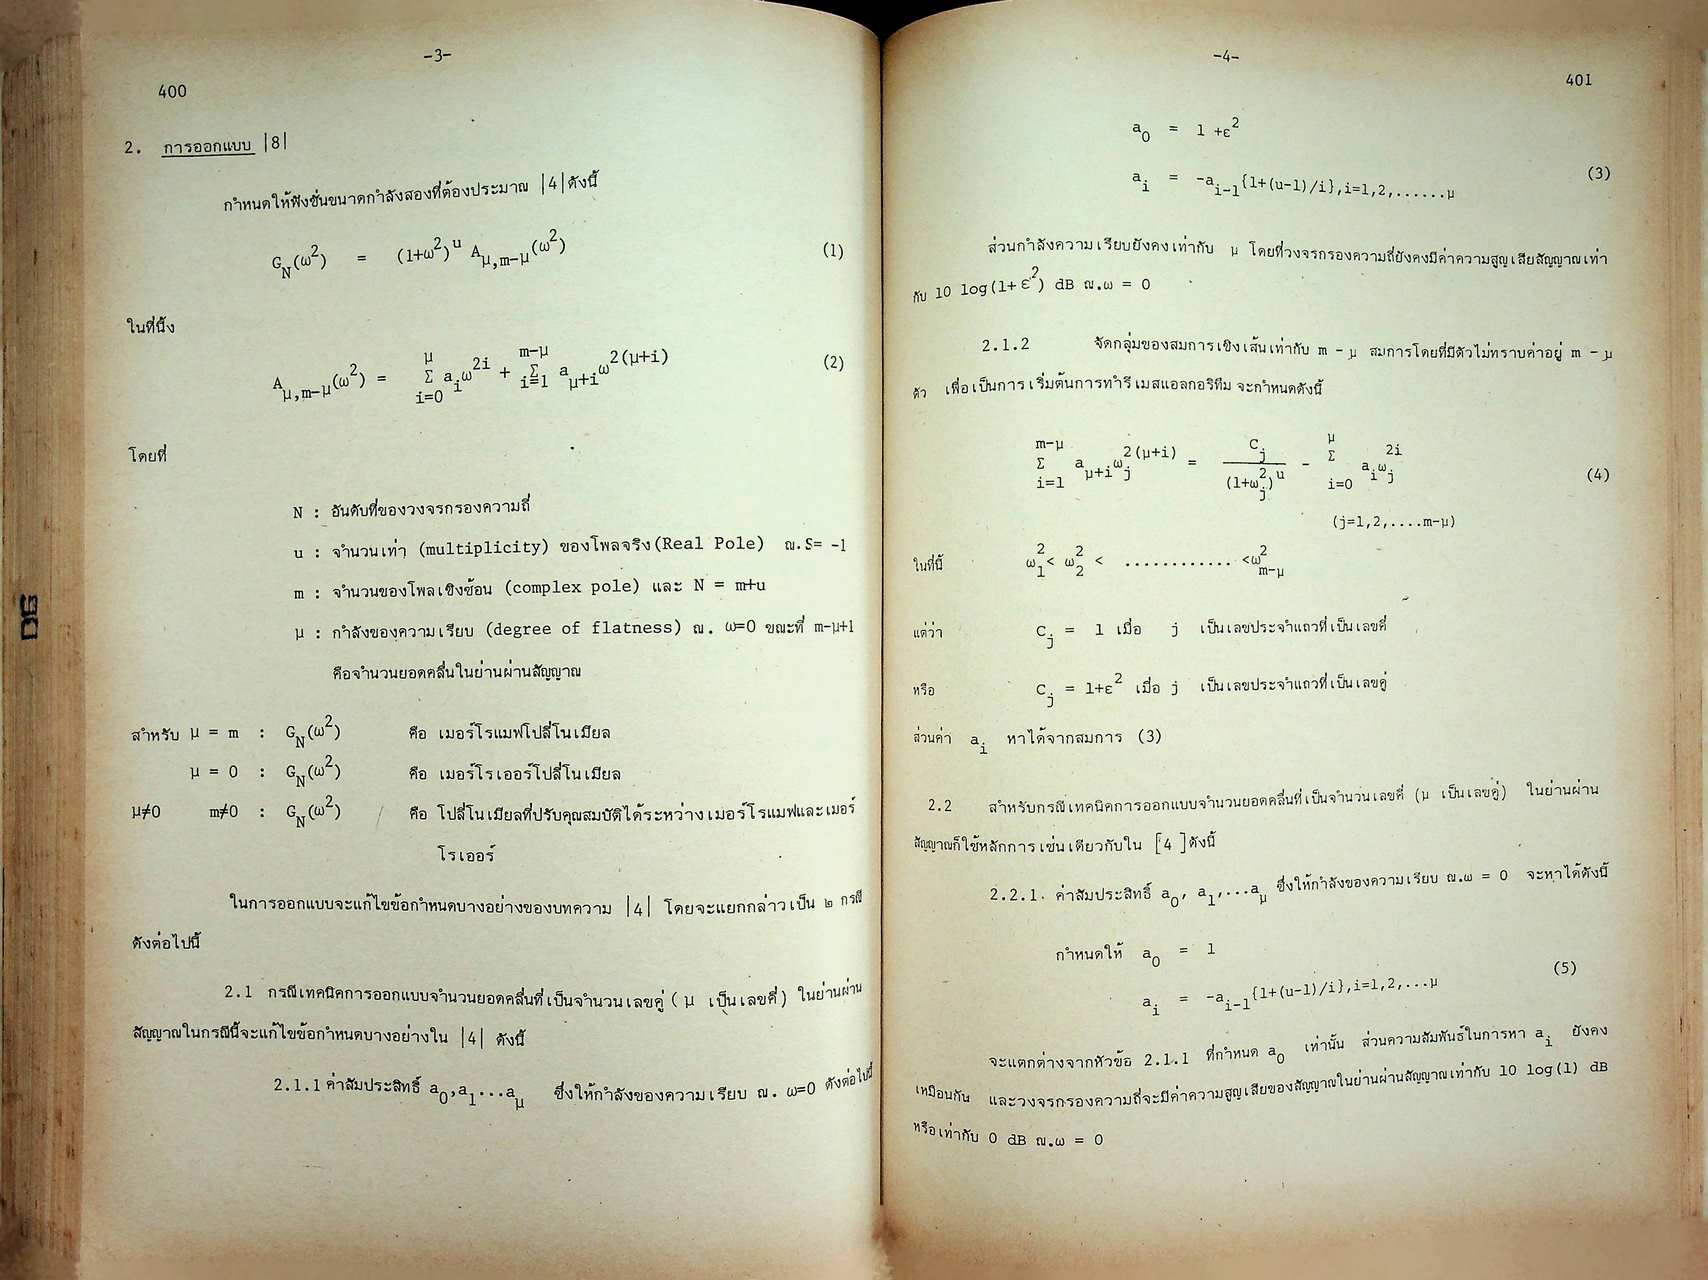 -3-
400
2. การออกแบบ |8|
กำหนดให้ฟังชั่นขนาดกำลังสองที่ต้องประมาณ |4|ดังนี้
G_N(ω²) = (1+ω²)^u A_μ,m-μ(ω²) (1)
ในที่นี้ง
A_μ,m-μ(ω²) = Σ_{i=0}^{μ} a_i ω^{2i} + Σ_{i=1}^{m-μ} a_{μ+i} ω^{2(μ+i)} (2)
โดยที่
N : อันดับที่ของวงจรกรองความถี่
u : จำนวนเท่า (multiplicity) ของโพลจริง(Real Pole) ณ.S= -1
m : จำนวนของโพลเชิงซ้อน (complex pole) และ N = m+u
μ : กำลังของความเรียบ (degree of flatness) ณ. ω=0 ขณะที่ m-μ+1
คือจำนวนยอดคลื่นในย่านผ่านสัญญาณ
สำหรับ μ = m : G_N(ω²) คือ เมอร์โรแมฟโปลี่โนเมียล
μ = 0 : G_N(ω²) คือ เมอร์โรเออร์โปลี่โนเมียล
μ≠0 m≠0 : G_N(ω²) คือ โปลี่โนเมียลที่ปรับคุณสมบัติได้ระหว่างเมอร์โรแมฟและเมอร์
โรเออร์
ในการออกแบบจะแก้ไขข้อกำหนดบางอย่างของบทความ |4| โดยจะแยกกล่าวเป็น ๒ กรณี
ดังต่อไปนี้
2.1 กรณีเทคนิคการออกแบบจำนวนยอดคลื่นที่เป็นจำนวนเลขคู่ ( μ เป็นเลขคี่) ในย่านผ่าน
สัญญาณในกรณีนี้จะแก้ไขข้อกำหนดบางอย่างใน |4| ดังนี้
2.1.1 ค่าสัมประสิทธิ์ a_0,a_1...a_μ ซึ่งให้กำลังของความเรียบ ณ. ω=0 ดังต่อไปนี้
-4-
401
a_0 = 1 +ε²
a_i = -a_{i-1}{1+(u-1)/i},i=1,2,......μ (3)
ส่วนกำลังความเรียบยังคงเท่ากับ μ โดยที่วงจรกรองความถี่ยังคงมีค่าความสูญเสียสัญญาณเท่า
กับ 10 log(1+ε²) dB ณ.ω = 0
2.1.2 จัดกลุ่มของสมการเชิงเส้นเท่ากับ m - μ สมการโดยที่มีตัวไม่ทราบค่าอยู่ m - μ
ตัว เพื่อเป็นการเริ่มต้นการทำรีเมสแอลกอริทึม จะกำหนดดังนี้
Σ_{i=1}^{m-μ} a_{μ+i} ω_j^{2(μ+i)} = C_j/(1+ω_j²)^u - Σ_{i=0}^{μ} a_i ω_j^{2i} (4)
(j=1,2,....m-μ)
ในที่นี้ ω_1² < ω_2² < ............ <ω²_{m-μ}
แต่ว่า C_j = 1 เมื่อ j เป็นเลขประจำแถวที่เป็นเลขคี่
หรือ C_j = 1+ε² เมื่อ j เป็นเลขประจำแถวที่เป็นเลขคู่
ส่วนค่า a_i หาได้จากสมการ (3)
2.2 สำหรับกรณีเทคนิคการออกแบบจำนวนยอดคลื่นที่เป็นจำนวนเลขคี่ (μ เป็นเลขคู่) ในย่านผ่าน
สัญญาณก็ใช้หลักการเช่นเดียวกับใน [4 ]ดังนี้
2.2.1. ค่าสัมประสิทธิ์ a_0, a_1,...a_μ ซึ่งให้กำลังของความเรียบ ณ.ω = 0 จะหาได้ดังนี้
กำหนดให้ a_0 = 1
a_i = -a_{i-1}{1+(u-1)/i},i=1,2,...μ (5)
จะแตกต่างจากหัวข้อ 2.1.1 ที่กำหนด a_0 เท่านั้น ส่วนความสัมพันธ์ในการหา a_i ยังคง
เหมือนกัน และวงจรกรองความถี่จะมีค่าความสูญเสียของสัญญาณในย่านผ่านสัญญาณเท่ากับ 10 log(1) dB
หรือเท่ากับ 0 dB ณ.ω = 0